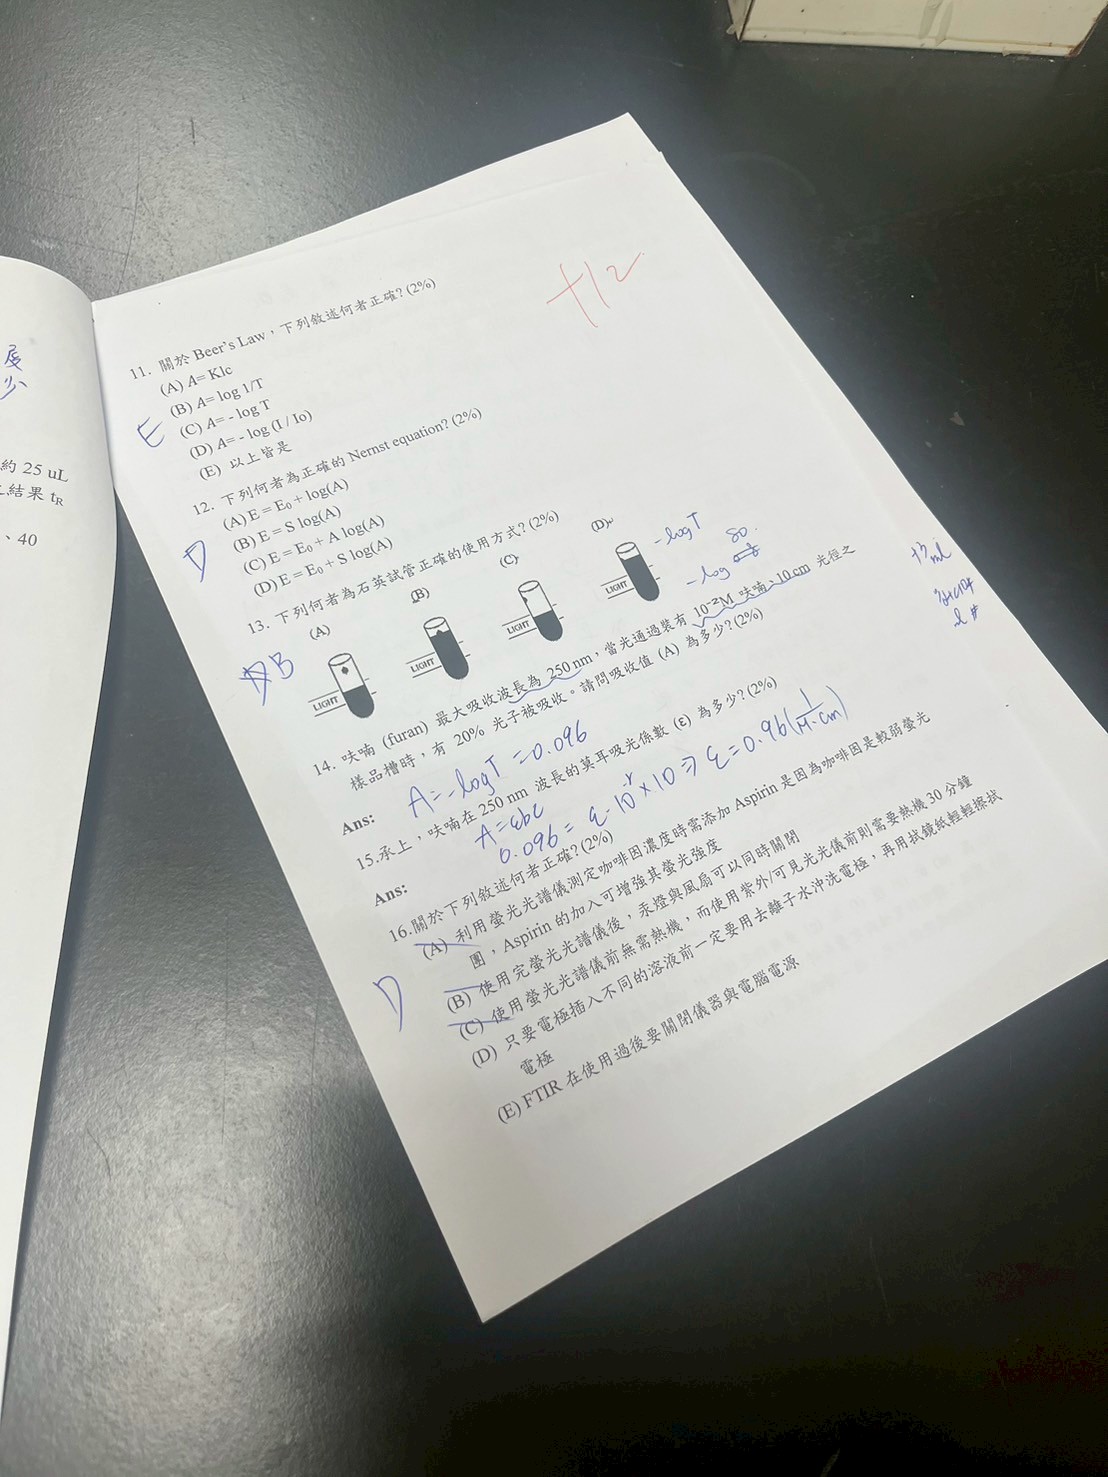 展
少
約 25 uL
結果 tR
、40
+12
11. 關於 Beer's Law,下列敘述何者正確? (2%)
(A) A= Klc
(B) A= log 1/T
(C) A= - log T
(D) A= - log (I / Io)
(E) 以上皆是
E
12. 下列何者為正確的 Nernst equation? (2%)
(A) E = E₀ + log(A)
(B) E = S log(A)
(C) E = E₀ + A log(A)
(D) E = E₀ + S log(A)
D
13. 下列何者為石英試管正確的使用方式? (2%)
(A) (B) (C) (D)
LIGHT LIGHT LIGHT LIGHT
B
-logT
-log 80
14. 呋喃 (furan) 最大吸收波長為 250 nm,當光通過裝有 10⁻²M 呋喃、10 cm 光徑之
樣品槽時,有 20% 光子被吸收。請問吸收值 (A) 為多少? (2%)
Ans: A=-logT =0.096
15.承上,呋喃在 250 nm 波長的莫耳吸光係數 (ε) 為多少? (2%)
A=εbc
Ans: 0.096 = ε·10⁻²×10 ⇒ ε=0.96(1/M·cm)
16.關於下列敘述何者正確? (2%)
(A) 利用螢光光譜儀測定咖啡因濃度時需添加 Aspirin 是因為咖啡因是較弱螢光
團,Aspirin 的加入可增強其螢光強度
(B) 使用完螢光光譜儀後,汞燈與風扇可以同時關閉
(C) 使用螢光光譜儀前無需熱機,而使用紫外/可見光光儀前則需要熱機 30 分鐘
(D) 只要電極插入不同的溶液前一定要用去離子水沖洗電極,再用拭鏡紙輕輕擦拭
電極
(E) FTIR 在使用過後要關閉儀器與電腦電源
D